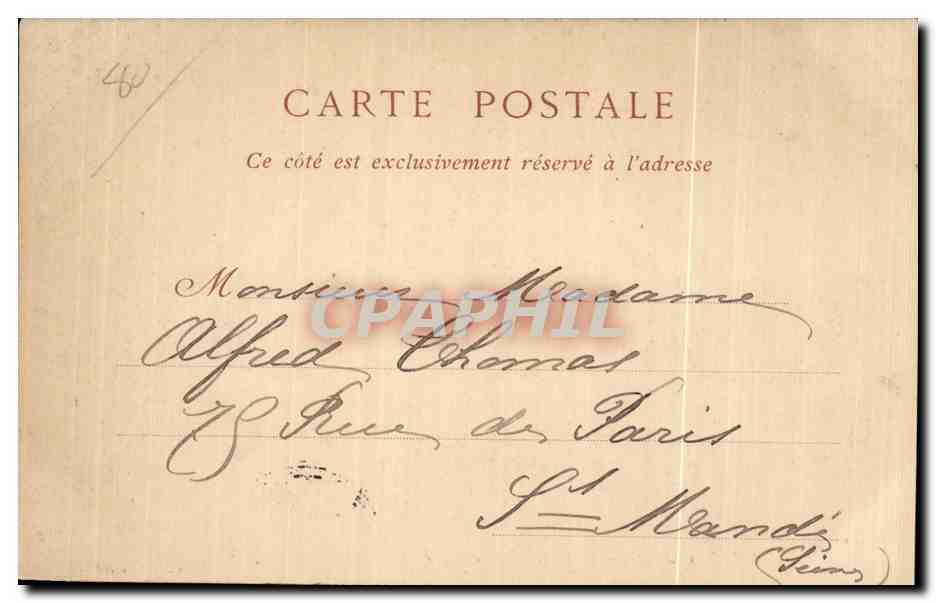 80
CARTE POSTALE
Ce côté est exclusivement réservé à l'adresse
Monsieur Madame
CPAPHIL
Alfred Thomas
75 Rue de Paris
St Mandé
(Seine)